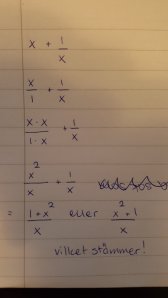 x + 1/x
x/1 + 1/x
x·x/1·x + 1/x
x²/x + 1/x
= 1+x²/x eller x²+1/x
vilket stämmer!